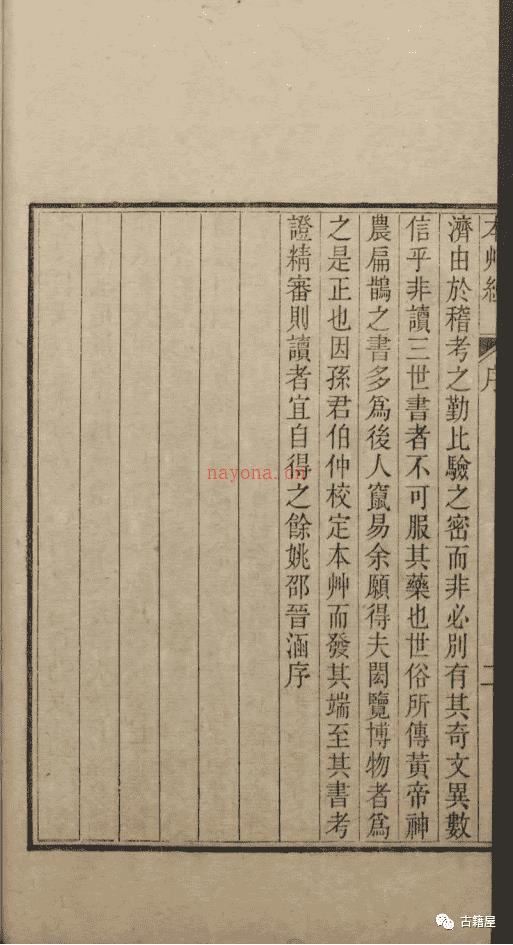 本艸經
序
二
濟由於稽考之勤比驗之密而非必別有其奇文異數
信乎非讀三世書者不可服其藥也世俗所傳黃帝神
農扁鵲之書多爲後人竄易余願得夫閎覽博物者爲
之是正也因孫君伯仲校定本艸而發其端至其書考
證精審則讀者宜自得之餘姚邵晉涵序
nayona.cn
古籍屋